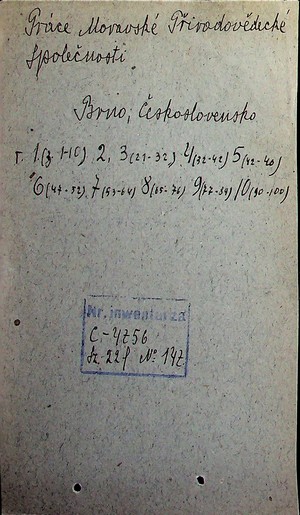 Práce Moravské Přírodovědecké
Společnosti
Brno, Československo
r. 1 (z. 1-10) 2, 3 (21-32) 4 (32-42) 5 (42-46)
6 (47-52) 7 (53-64) 8 (65-76) 9 (77-89) 10 (90-100)
Nr. inwentarza
C-4756
Sz. 22f No 147